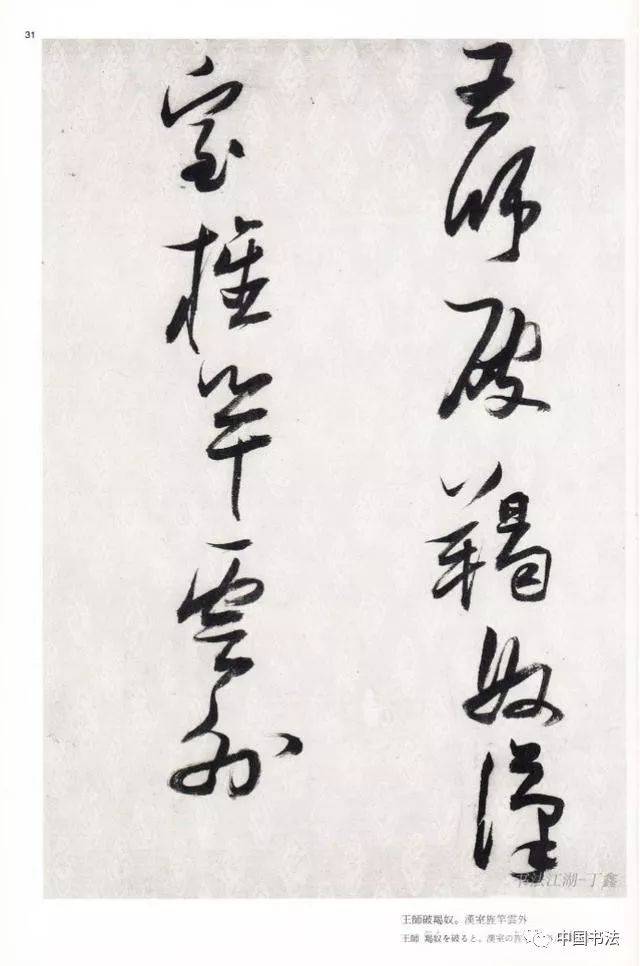 31
王師破羯奴漢
室旌竿雲外
书法江湖-丁鑫
王師破羯奴。漢室旌竿雲外
王師 羯奴を破ると、漢室の旌
中国书法